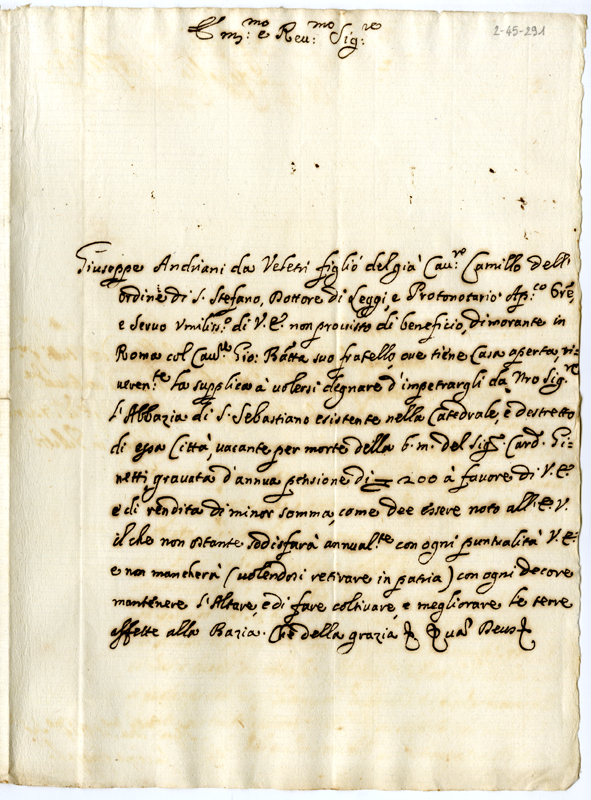 2-45-291
Em:mo e Reu:mo Sig:re
Giuseppe Andriani da Veletri figlio del già Cau:re Camillo dell'
ordine di S. Stefano, Dottore di Leggi, e Protonotario Ap:co Ore,
e Seruo Vmiliss:o di V. E. non prouisto di beneficio, dimorante in
Roma col Cau:re Gio: Batta suo fratello, oue tiene Casa aperta, ri=
ueren:te La supplica à uolersi degnare d'impetrargli da Nro Sig:re
l'Abbazia di S. Sebastiano esistente nella Catedrale, e destretto
di essa Città, uacante per morte della b. m. del Sig:r Card. Gi=
netti, grauata d'annua pensione di 200 à fauore di V. E.
e di rendita di minor somma, come dee essere noto all'E. V.
il che non ostante sodisfarà annual:te con ogni puntualità V. E.
e non mancherà (uolendosi retirare in patria) con ogni decore
mantenere l'Altare, e di fare coltiuare, e megliorare le terre
affette alla Bazia. Che della grazia Quam Deus